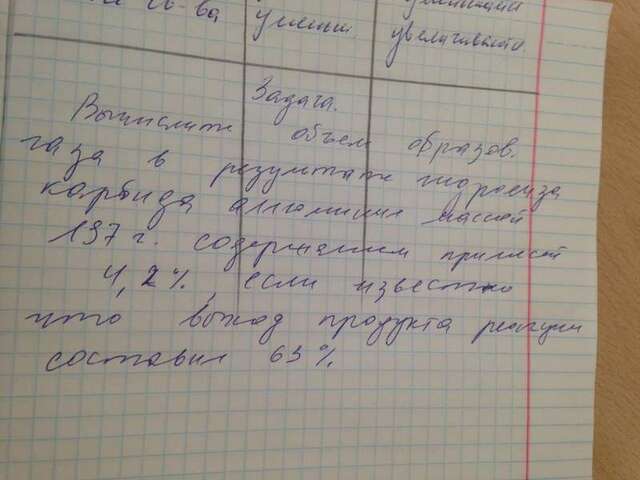 св-ва
увеличивать.
Задача.
Вычислите объем образов.
газа в результате гидролиза
карбида алюминия массой
197 г. содержанием примесей
4,2%, если известно
что выход продукта реакции
составил 63%.